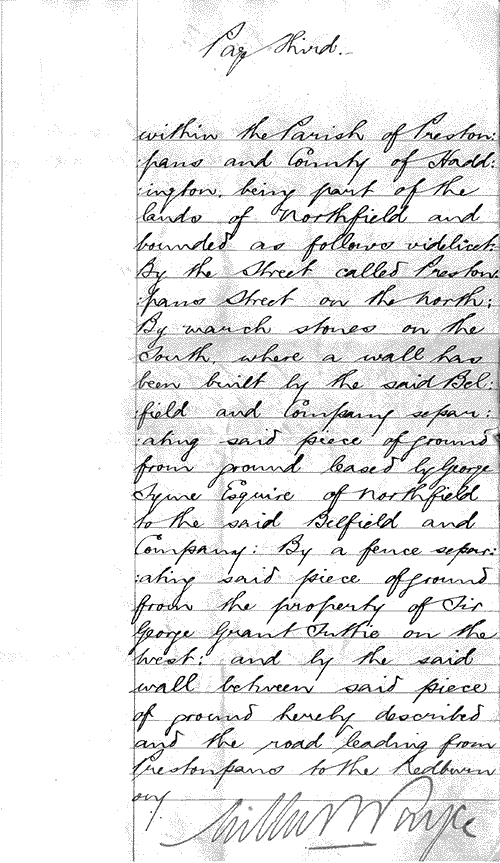 Page third.
within the Parish of Preston:
:pans and County of Hadd:
:ington, being part of the
lands of Northfield and
bounded as follows videlicet:
By the Street called Preston:
:pans Street on the North;
By march stones on the
South, where a wall has
been built by the said Bel:
:field and Company separ:
:ating said piece of ground
from ground leased by George
Syme Esquire of Northfield
to the said Belfield and
Company: By a fence separ:
:ating said piece of ground
from the property of Sir
George Grant Suttie on the
West: and by the said
wall between said piece
of ground hereby described
and the road leading from
Prestonpans to the Redburn
on